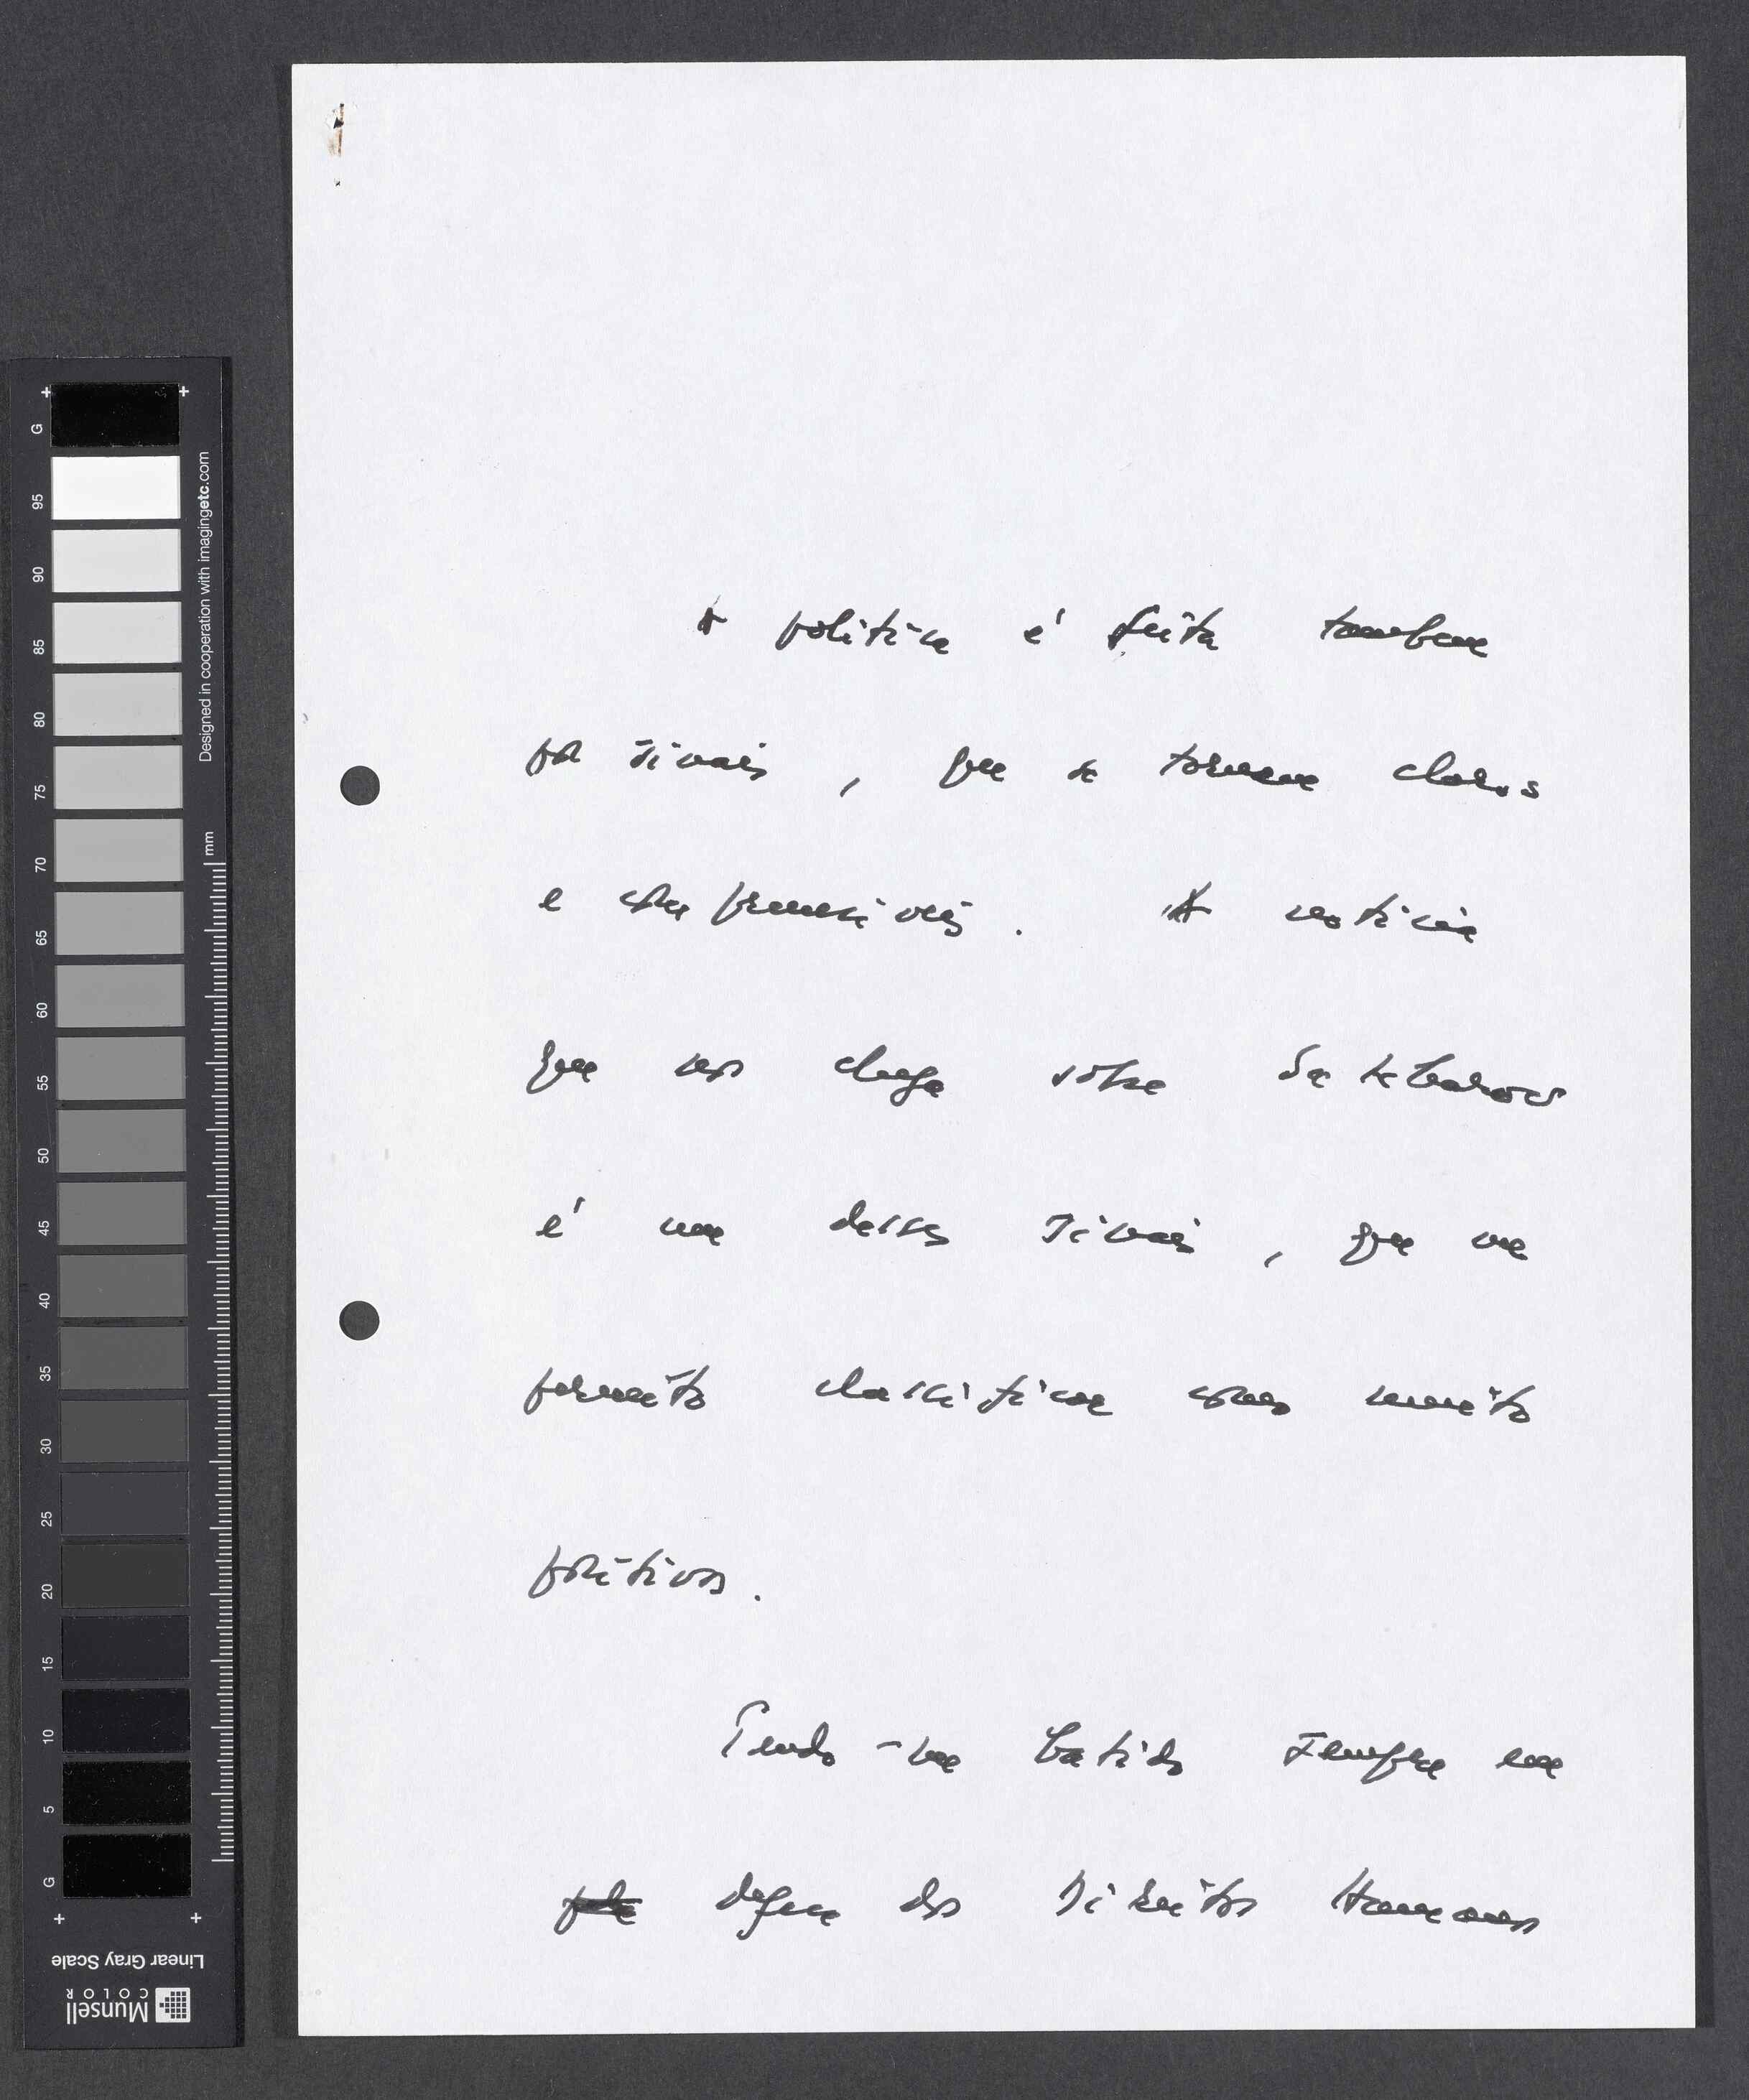 A politica é feita tambem
por sinais, que se tornam claros
e compreensiveis. A noticia
que nos chega sobre
é um desses sinais, que me
permito classificar como muito
positivos.
Tendo-me batido sempre em
defesa dos Direitos Humanos
G 95 90 85 80 75 70 65 60 55 50 45 40 35 30 25 20 15 10 5 G
mm
Designed in cooperation with imagingetc.com
Linear Gray Scale
Munsell
COLOR